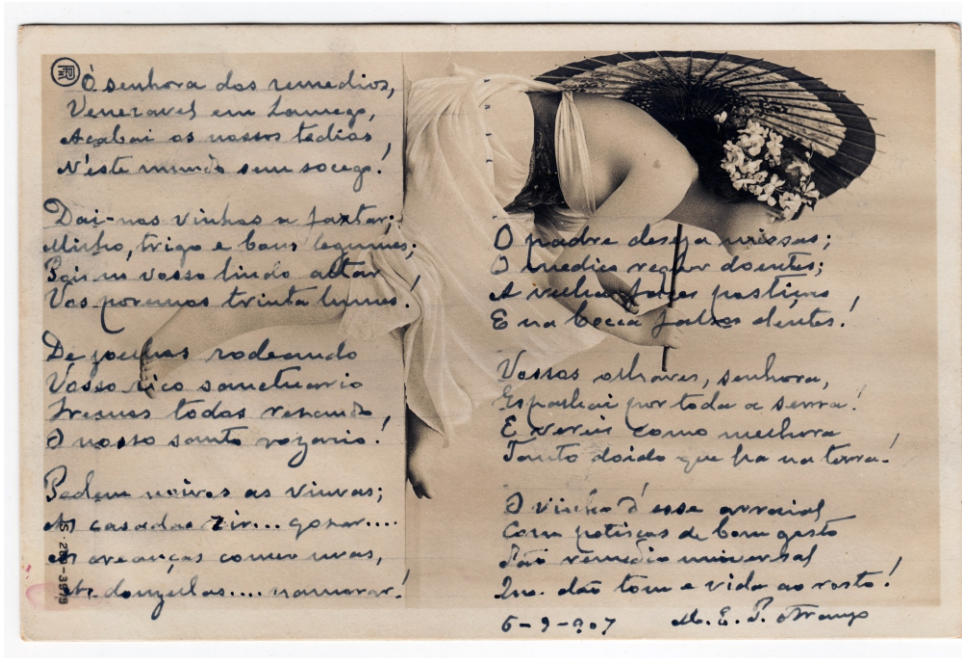 Ó senhora dos remedios,
Veneravel em Lamego,
Acabai os nossos tedios
N'este mundo sem socego!
Dai-nos vinhos a fartar;
Milho, trigo e bons legumes;
Pois no vosso lindo altar
Vos poremos trinta lumes!
De joelhos rodeando
Vosso rico sanctuario
Iremos todos resando,
O nosso santo rozario!
Pedem noivos as viuvas;
As casadas rir... gosar....
As creanças comer uvas,
As donzellas.... namorar!
O padre deseja missas;
O medico requer doentes;
A velha postiços
E na bocca falsos dentes!
Vossos olhares, senhora,
Espalhai por toda a serra!
E vereis como melhora
Tanto doido que ha na terra!
O vinho d'esse arraial
Com petiscos de bom gosto
São remedio universal
Que dão tom e vida ao rosto!
6-9-907 M. E. P.